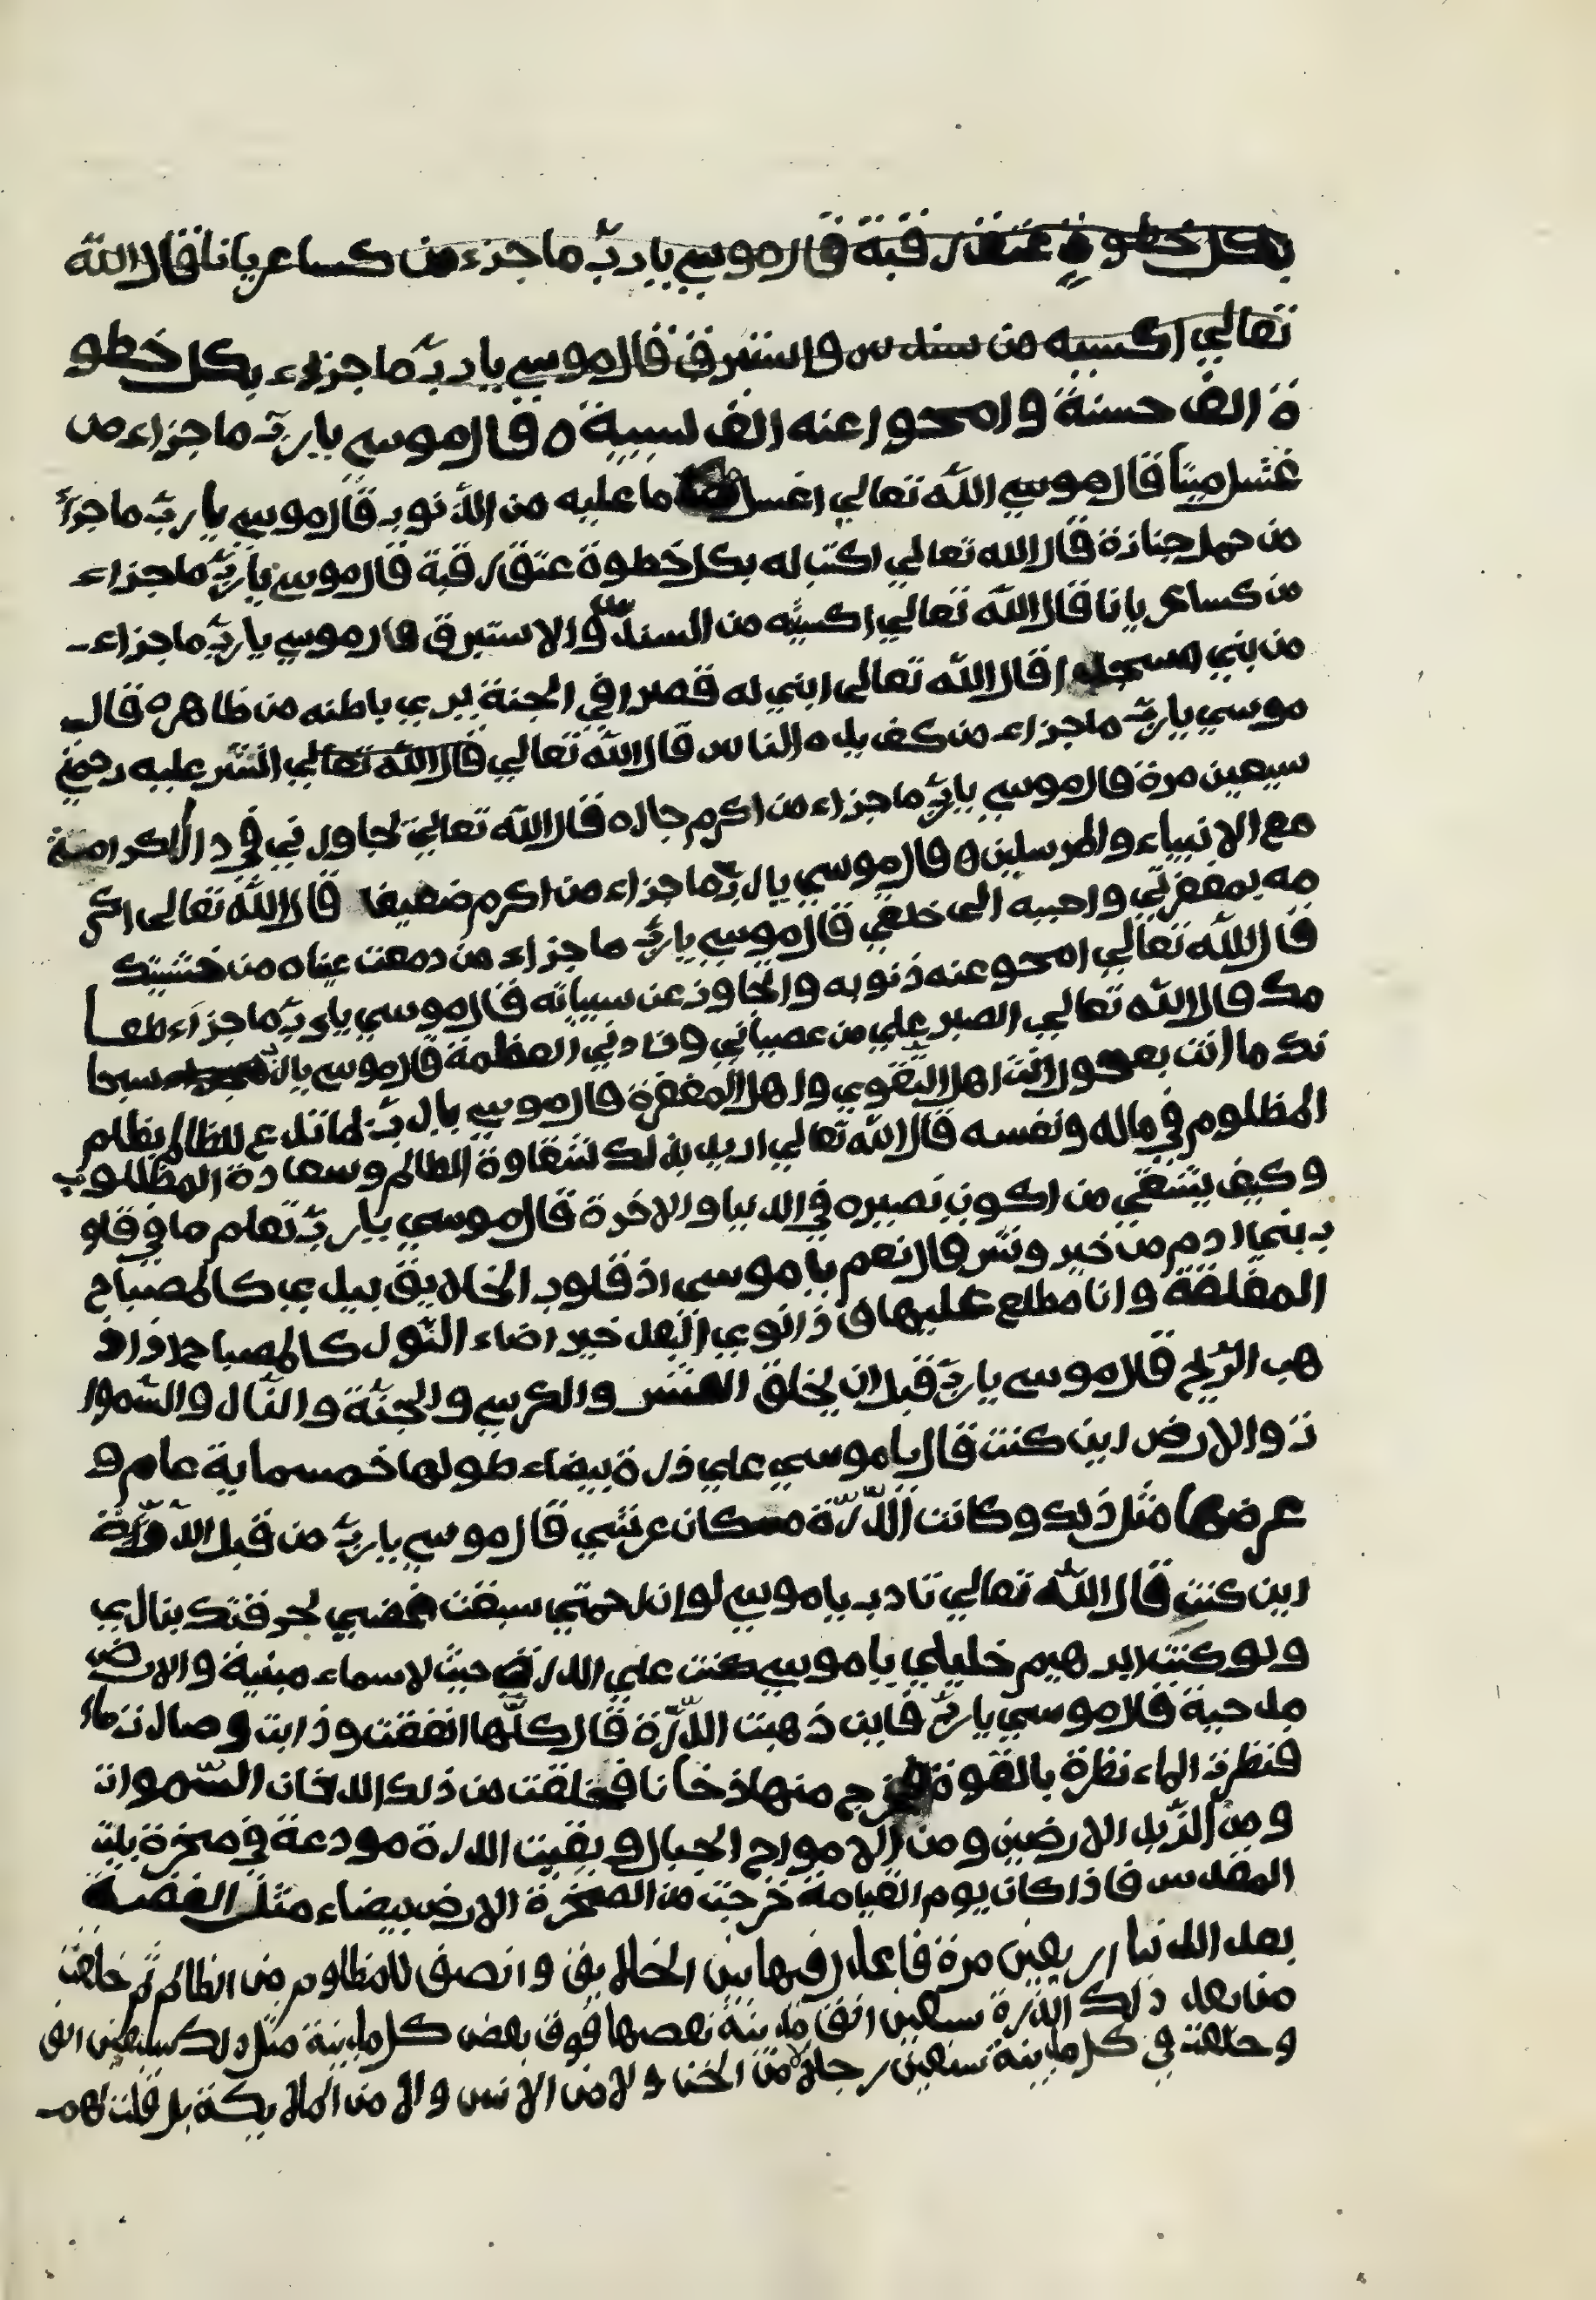 بكل خطوة عتق رقبة قال موسي يا رب ما جزء من كسا عريانا قال الله
تعالي اكسيه من سندس واستبرق قال موسي يا رب ما جزاء بكل خطو
ة الف حسنة وامحوا عنه الف سيية ه قال موسي يا رب ما جزاء من
غسل ميتا قال موسي الله تعالي اغسل ما عليه من الذنوب قال موسي يا رب ما جزاء
من حمل جنازة قال الله تعالي اكتب له بكل خطوة عتق رقبة قال موسي يا رب ما جزاء
من كسا عريانا قال الله تعالي اكسيه من السندس والاستبرق قال موسي يا رب ما جزاء
من بني مسجدا قال الله تعالى ابني له قصرا في الجنة يري باطنه من ظاهره قال
موسي يا رب ما جزاء من كف يده الناس قال الله تعالي قال الله تعالي انشر عليه رحمتي
سبعين مرة قال موسي يا رب ما جزاء من اكرم جاره قال الله تعالي يجاورني في دار الكرامة
مع الانبياء والمرسلين ه قال موسي يا رب ما جزاء من اكرم ضعيفا قال الله تعالى اكر
مه بمغفرتي واحببه الى خلقي قال موسي يا رب ما جزاء من دمعت عيناه من خشيتك
قال الله تعالي امحو عنه ذنوبه واتجاوز عن سيياته قال موسي يا رب ما جزاء
مك قال الله تعالي الصبر علي من عصياني العظمة قال موسي يا رب سبحا
نك ما انت بعجول انت اهل التقوي واهل المغفرة قال موسي يا رب لما تدع للظالم يظلم
المظلوم في ماله ونفسه قال الله تعالي اريد بذلك شقاوة الظالم وسعادة المظلوب
وكيف يشقي من اكون نصيره في الدنيا والاخرة قال موسي يا رب تعلم ما في قلو
ب بني ادم من خير وشر قال نعم يا موسى اذ قلوب الخلايق بيدي كالمصباح
المغلقة وانا مطلع عليها فاذا نوي العبد خير اضاء النور كالمصباح اذا
هب الريح قلا موسي يا رب قبل ان يخلق العرش والكرسي والجنة والنار والسموا
ت والارض اين كنت قال يا موسي علي درة بيضاء طولها خمسماية عام و
عرضها مثل ذلك وكانت الدرة مسكان عرشي قال موسي يا رب من قبل الدرة
اين كنت قال الله تعالي تادب يا موسي لوا ان رحمتي سبقت غضبي لحرقتك بناري
ولو كنت لابرهيم خليلي يا موسي كنت علي الدرة حيث لا سماء مبنية والارض
مدحية قلا موسي يا رب فاين ذهبت الدرة قال كلها انفقت وذابت وصارت ماء
فنظرت الماء نظرة بالقوة فخرج منها دخانا فخلقت من ذلك الدخان السموات
ومن الزبد الارضين ومن الامواج الجبال وبقيت الدرة مودعة في صخرة بيت
المقدس فاذا كان يوم القيامة خرجت من الصخرة الارض بيضاء مثل الفضة
بعد الدنيا اربعين مرة فاعدل فيها بين الخلايق وانصف للمظلوم من الظالم ثم خلقت
من بعد ذلك الدرة سبعين الف مدينة بعضها فوق بعض كل مدينة مثل ذلك سبعين الف
وخلقت في كل مدينة سبعين رجلا لا من الجن ولا من الانس ولا من الملايكة بل قلت لهم